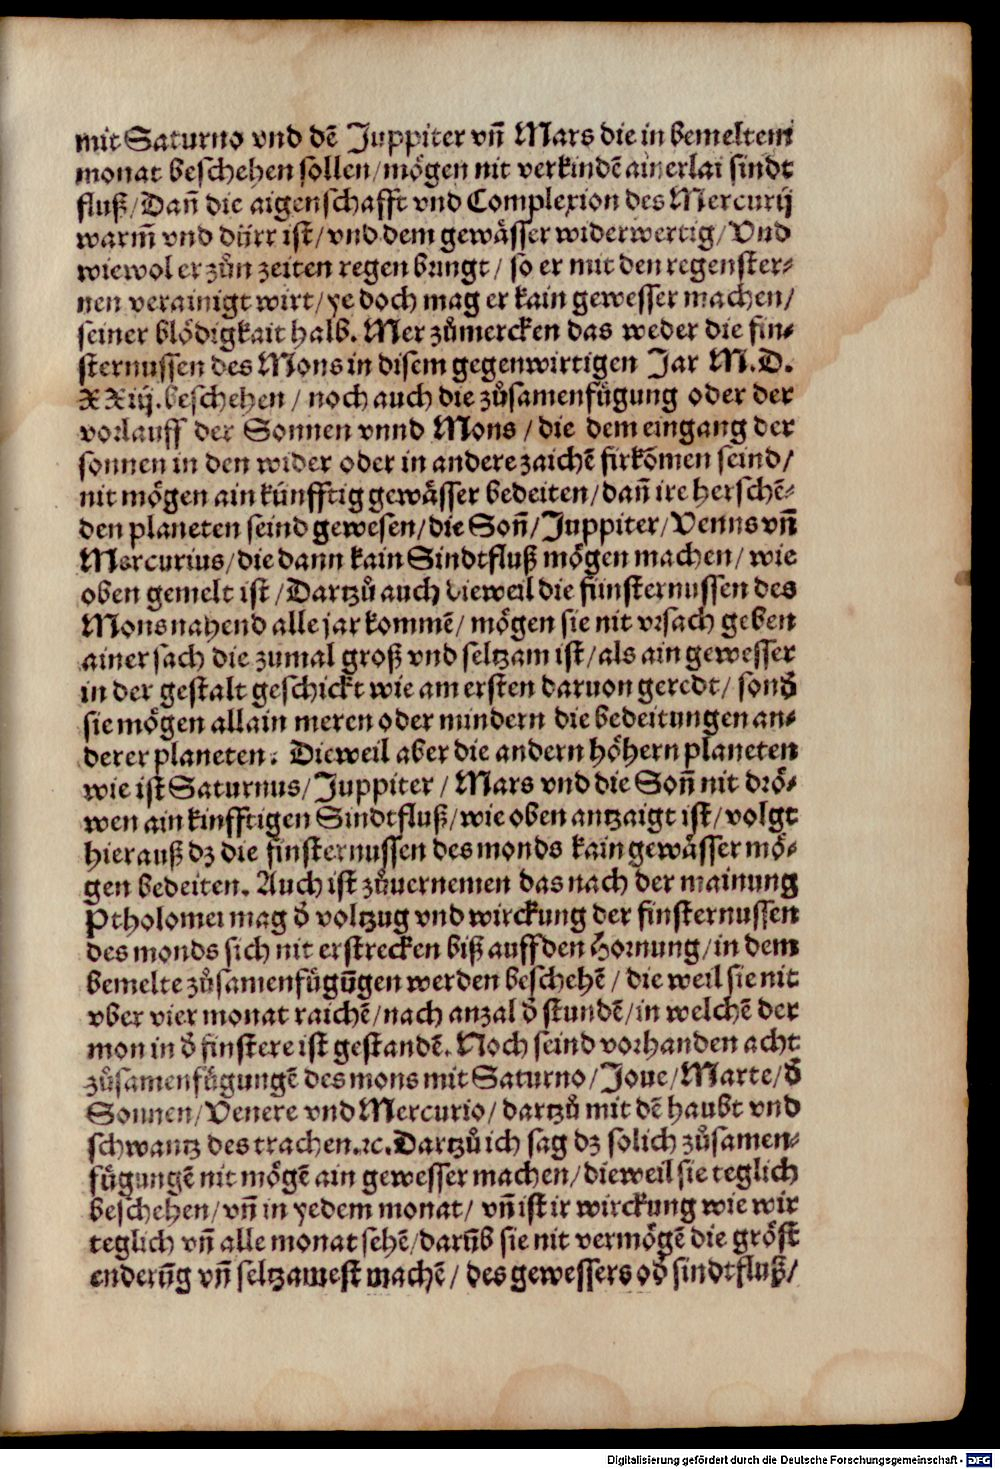 mit Saturno vnd dē Juppiter vñ Mars die in bemeltem
monat beschehen sollen/mögen nit verkindē ainerlai sindt
fluß/Dañ die aigenschafft vnd Complexion des Mercurij
warm̄ vnd dürr ist/vnd dem gewässer widerwertig/Vnd
wiewol er zůn zeiten regen bringt/so er mit den regenster-
nen verainigt wirt/ye doch mag er kain gewesser machen/
seiner blödigkait halb. Mer zůmercken das weder die fin-
sternussen des Mons in disem gegenwirtigen Jar M.D.
XXiij.beschehen/noch auch die zůsamenfügung oder der
vorlauff der Sonnen vnnd Mons/die dem eingang der
sonnen in den wider oder in andere zaichē firkōmen seind/
nit mögen ain künfftig gewässer bedeiten/dañ ire herschē-
den planeten seind gewesen/die Soñ/Juppiter/Venus vñ
Mercurius/die dann kain Sindtfluß mögen machen/wie
oben gemelt ist/Dartzů auch dieweil die finsternussen des
Mons nahend alle jar kommē/mögen sie nit vrsach geben
ainer sach die zumal groß vnd seltzam ist/als ain gewesser
in der gestalt geschickt wie am ersten daruon geredt/sond̄
sie mögen allain meren oder mindern die bedeitungen an-
derer planeten. Dieweil aber die andern höhern planeten
wie ist Saturnus/Juppiter/Mars vnd die Soñ nit drö-
wen ain kinfftigen Sindtfluß/wie oben antzaigt ist/volgt
hierauß dz die finsternussen des monds kain gewässer mö-
gen bedeiten. Auch ist zůuernemen das nach der mainung
Ptholomei mag d̄ voltzug vnd wirckung der finsternussen
des monds sich nit erstrecken biß auff den Hornung/in dem
bemelte zůsamenfügūgen werden beschehē/die weil sie nit
vber vier monat raichē/nach anzal d̄ stundē/in welchē der
mon in d̄ finstere ist gestandē. Noch seind vorhanden acht
zůsamenfügungē des mons mit Saturno/Joue/Marte/d̄
Sonnen/Venere vnd Mercurio/dartzů mit dē haubt vnd
schwantz des trachen.ꝛc. Dartzů ich sag dz solich zůsamen-
fügungē nit mögē ain gewesser machen/dieweil sie teglich
beschehen/vñ in yedem monat/vñ ist ir wirckung wie wir
teglich vñ alle monat sehē/darūb sie nit vermögē die gröst
enderūg vñ seltzamest machē/des gewessers od̄ sindtfluß/
Digitalisierung gefördert durch die Deutsche Forschungsgemeinschaft - DFG